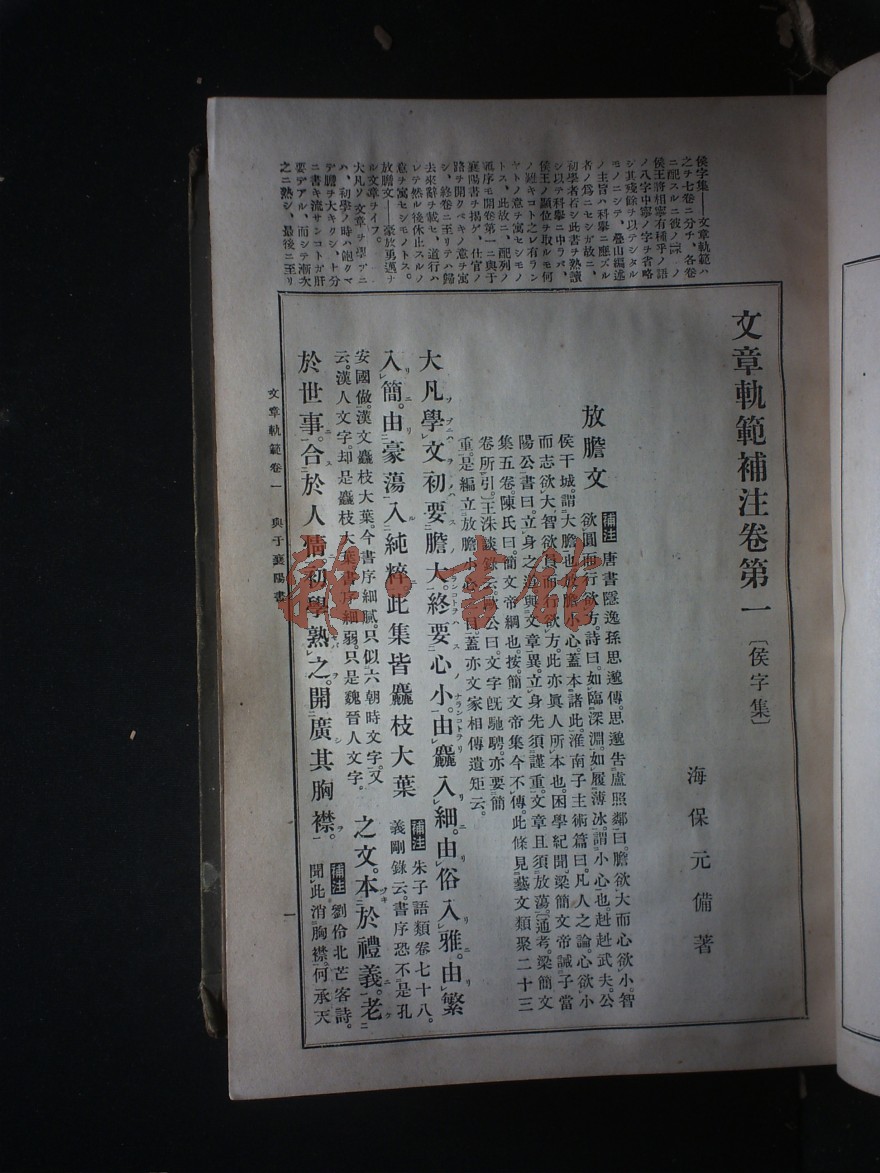 文章軌範補注卷第一〔侯字集〕
海保元備著
放膽文
補注 唐書隱逸孫思邈傳。思邈告盧照鄰曰。膽欲大而心欲小。智
欲圓而行欲方。詩曰。如臨深淵。如履薄冰。謂小心也。赳赳武夫。公
侯干城。謂大膽也。放膽小心。蓋本諸此。淮南子主術篇曰。凡人之論。心欲小
而志欲大。智欲員而行欲方。此亦眞人所本也。困學紀聞。梁簡文帝誡子當
陽公書曰。立身之道與文章異。立身先須謹重。文章且須放蕩。〔通考。梁簡文
集五卷。陳氏曰。簡文帝綱也。按。簡文帝集。今不傳。此條見藝文類聚二十三
卷所引。〕王洙談錄云。公曰。文字旣馳騁。亦要簡
重。是編立放膽小心目。蓋亦文家相傳遺矩云。
大凡學文。初要膽大。終要心小。由麤入細。由俗入雅。由繁
入簡。由豪蕩入純粹。此集皆麤枝大葉
補注 朱子語類卷七十八。
義剛錄云。書序恐不是孔
安國做。漢文麤枝大葉。今書序細膩。只似六朝時文字。又
云。漢人文字。却是麤枝大葉。書序細弱。只是魏晉人文字。
之文。本於禮義。老
於世事。合於人情。初學熟之。開廣其胸襟。
補注 劉伶北芒客詩。
聞此消胸襟。何承天
侯字集——文章軌範ハ
之ヲ七卷ニ分チ、各卷
ニ配スルニ彼ノ「 」ノ
侯王將相寧有種乎ノ語
ノ八字中寧ノ字ヲ省略
シ其殘餘ヲ以テシタル
モノニシテ、疊山編述
ノ主旨ハ科擧ニ應ズル
者ノ爲ニセシガ故ニ、
初學者若シ此書ヲ熟讀
シ以テ科擧ニ中ラバ、
侯王ノ顯位ヲ取ルモ何
ノ難キコトカ之レ有ラン
ヤトノ意ヲ寓セシモノ
トス、此故ニ、配列ノ
順序モ開卷第一ニ與于
襄陽書ヲ揭ゲ、仕官ノ
路ヲ開クベキノ意ヲ寓
シ、終卷ニ至リテハ歸
去來辭ヲ載セ、道行ハ
レテ然ル後休止スルノ
意ヲ寓セシモノトス。
放膽文——豪放勇邁ナ
ル文章ヲイフ。
大凡ソ、文章ヲ學ブニ
ハ、初學ノ時ハ飽クマ
デ膽ヲ大キクシ、十分
ニ書キ流サンコトガ肝
要デアル、而シテ漸次
之ニ熟シ、最後ニ至リ
文章軌範卷一 與于襄陽書
一
雜·書館